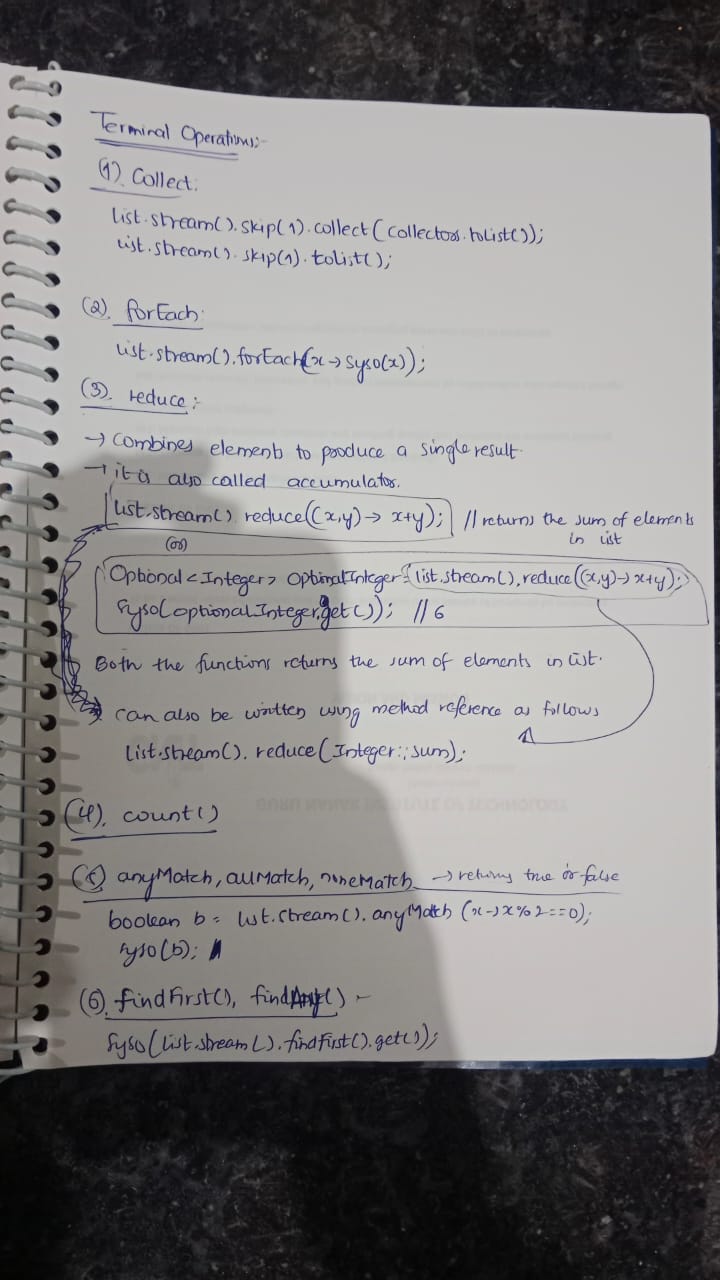 Terminal Operations:-
(1). Collect:
list.stream().skip(1).collect(Collectors.toList());
list.stream().skip(1).toList();
(2). forEach:
list.stream().forEach(x→syso(x));
(3). reduce:
→ Combines elements to produce a single result.
→ it is also called accumulator.
list.stream().reduce((x,y)→ x+y); // returns the sum of elements
in list
(or)
Optional<Integer> OptionalInteger = list.stream().reduce((x,y)→x+y);
syso(optionalInteger.get()); //6
Both the functions returns the sum of elements in list.
can also be written using method reference as follows
list.stream().reduce(Integer::sum);
(4). count()
(5) anyMatch, allMatch, noneMatch → returns true or false
boolean b = list.stream().anyMatch(x→x%2==0);
syso(b);
(6). findFirst(), findAny() -
syso(list.stream().findFirst().get());